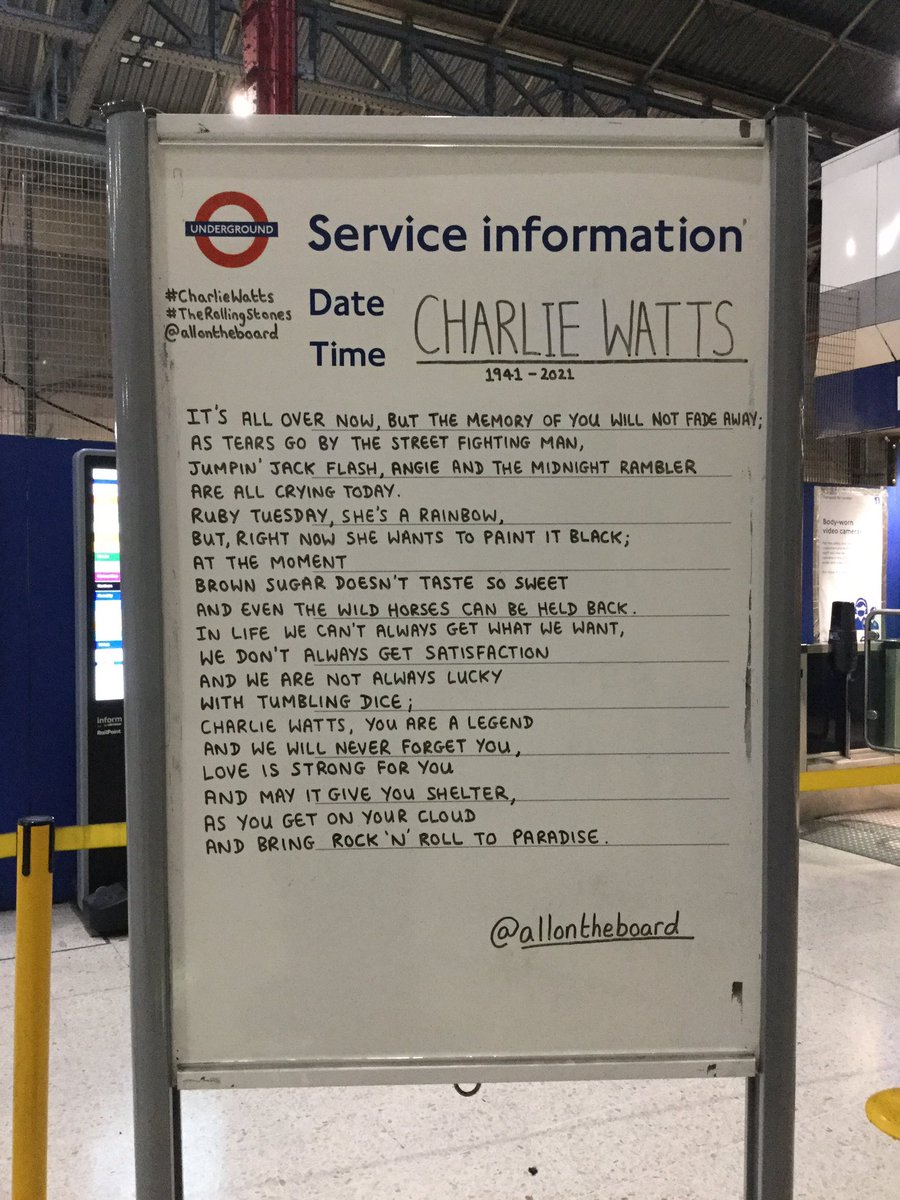 UNDERGROUND
Service information
#CharlieWatts
#TheRollingStones
@allontheboard
Date
Time
CHARLIE WATTS
1941 - 2021
IT'S ALL OVER NOW, BUT THE MEMORY OF YOU WILL NOT FADE AWAY;
AS TEARS GO BY THE STREET FIGHTING MAN,
JUMPIN' JACK FLASH, ANGIE AND THE MIDNIGHT RAMBLER
ARE ALL CRYING TODAY.
RUBY TUESDAY, SHE'S A RAINBOW,
BUT, RIGHT NOW SHE WANTS TO PAINT IT BLACK;
AT THE MOMENT
BROWN SUGAR DOESN'T TASTE SO SWEET
AND EVEN THE WILD HORSES CAN BE HELD BACK.
IN LIFE WE CAN'T ALWAYS GET WHAT WE WANT,
WE DON'T ALWAYS GET SATISFACTION
AND WE ARE NOT ALWAYS LUCKY
WITH TUMBLING DICE;
CHARLIE WATTS, YOU ARE A LEGEND
AND WE WILL NEVER FORGET YOU,
LOVE IS STRONG FOR YOU
AND MAY IT GIVE YOU SHELTER,
AS YOU GET ON YOUR CLOUD
AND BRING ROCK 'N' ROLL TO PARADISE.
@allontheboard
inform
RailPoint
Body-worn
video camera